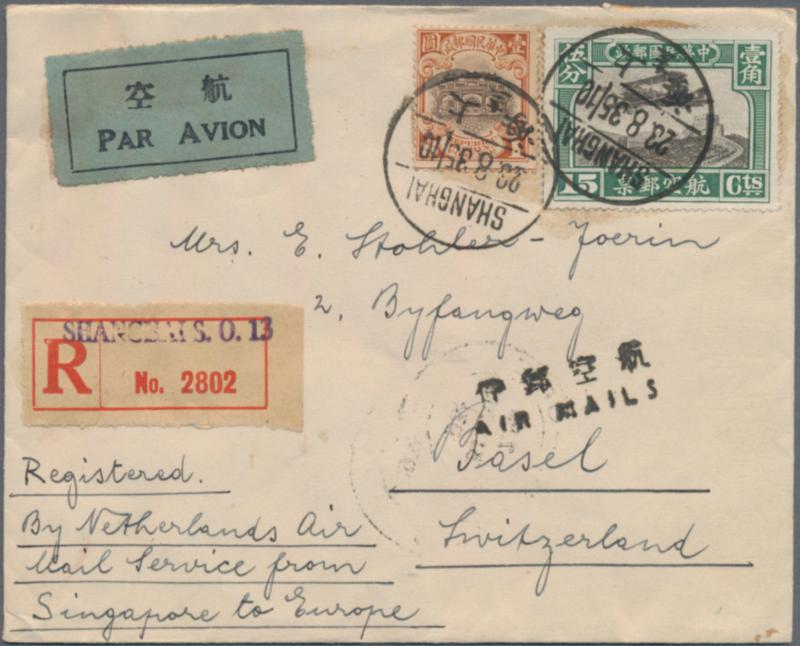 空 航
PAR AVION
圓 政郵國民華中 壹
伍分 政郵國民華中 壹角
15 票郵空航 Cts
SHANGHAI
23.8.35/10
SHANGHAI
23.8.35/10
Mrs. E. Stohler-Joerin
2, Byfangweg
SHANGHAI S. O. 13
R No. 2802
件郵空航
AIR MAILS
Basel
Switzerland
Registered.
By Netherlands Air
Mail Service from
Singapore to Europe